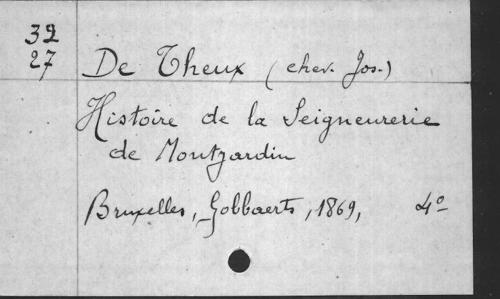 39
27
De Theux (chev. Jos.)
Histoire de la Seigneurerie
de Montjardin
Bruxelles, Gobbaerts, 1869, 4º